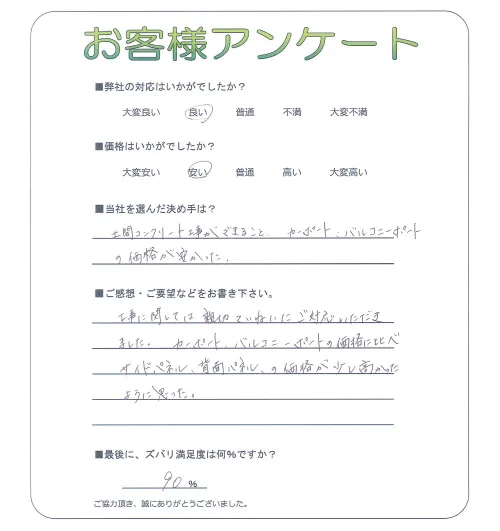 お客様アンケート
■弊社の対応はいかがでしたか？
大変良い 良い 普通 不満 大変不満
■価格はいかがでしたか？
大変安い 安い 普通 高い 大変高い
■当社を選んだ決め手は？
土間コンクリート工事ができること、カーポート、バルコニーポート
の価格が安かった。
■ご感想・ご要望などをお書き下さい。
工事に関しては親切ていねいにご対応いただき
ました。カーポート、バルコニーポートの価格に比べ
サイドパネル、背面パネル、の価格が少し高かった
ように思った。
■最後に、ズバリ満足度は何％ですか？
90 ％
ご協力頂き、誠にありがとうございました。